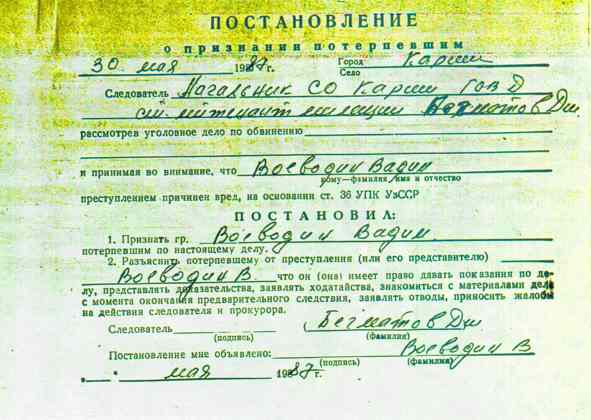 ПОСТАНОВЛЕНИЕ
о признании потерпевшим
30 мая 1987 г. Город Карши
Село
Следователь Начальник СО Карши ГОВД
ст. лейтенант милиции Бегматов Дж.
рассмотрев уголовное дело по обвинению
и принимая во внимание, что Воеводин Вадим
кому—фамилия, имя и отчество
преступлением причинен вред, на основании ст. 36 УПК УзССР
ПОСТАНОВИЛ:
1. Признать гр. Воеводин Вадим
потерпевшим по настоящему делу.
2. Разъяснить потерпевшему от преступления (или его представителю)
Воеводин В что он (она) имеет право давать показания по де-
лу, представлять доказательства, заявлять ходатайства, знакомиться с материалами дела
с момента окончания предварительного следствия, заявлять отводы, приносить жалобы
на действия следователя и прокурора.
Следователь Бегматов Дж.
(подпись) (фамилия)
Постановление мне объявлено: Воеводин В
(подпись) (фамилия)
„ " мая 1987 г.